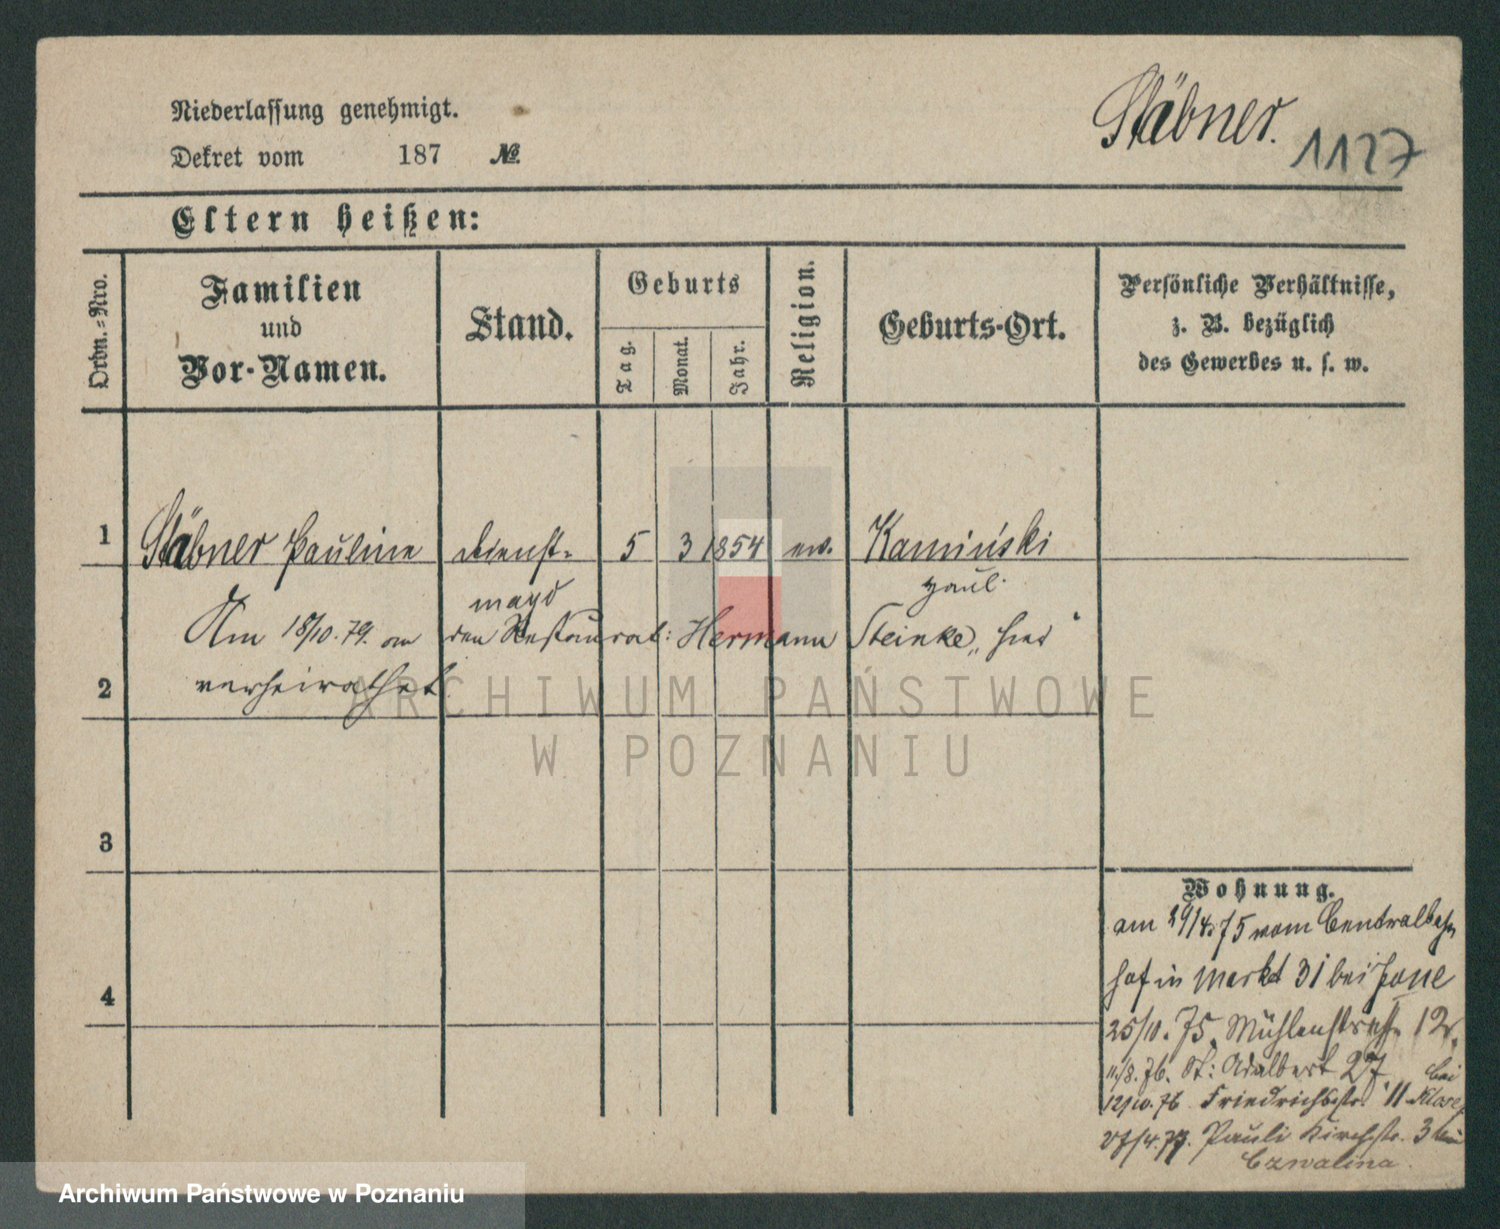 Niederlassung genehmigt.
Stäbner.
1127
Dekret vom 187 №
Eltern heißen:
Ordn.-Nro.
Familien
und
Vor-Namen.
Stand.
Geburts
Tag.
Monat.
Jahr.
Religion.
Geburts-Ort.
Persönliche Verhältnisse,
z. B. bezüglich
des Gewerbes u. s. w.
1 Stäbner Pauline Dienst- 5 3 1854 ev. Kamiński
magd
Am 18/10. 79. an den Restaurat: Hermann Steinke, hier
2 verheirathet.
3
4
Wohnung.
am 29/4. 75 vom Centralbahn
hof in Markt 31 bei
25/10. 75. Mühlenstraße 12.
11/8. 76. St: Adalbert 27. bei
12/10. 76 Friedrichstr. 11
27/4. 77. Pauli Kirchstr. 3 bei
Czwalina.
ARCHIWUM PAŃSTWOWE
W POZNANIU
Archiwum Państwowe w Poznaniu